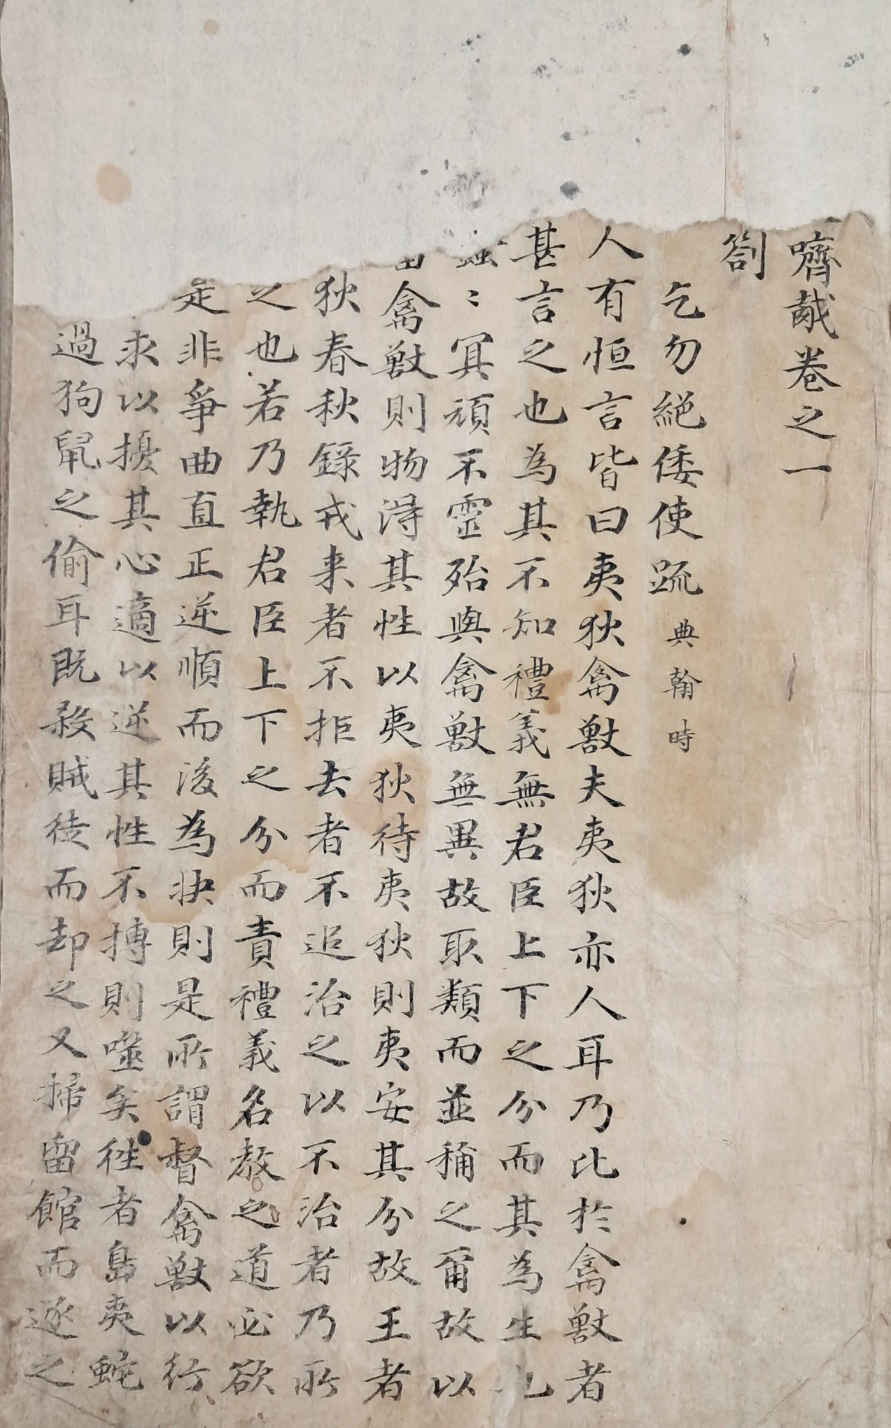 嚌胾卷之一
劄
乞勿絕倭使疏 典翰時
人有恒言皆曰夷狄禽獸夫夷狄亦人耳乃比於禽獸者
甚言之也為其不知禮義無君臣上下之分而其為生也
蠢〻冥頑不靈殆與禽獸無異故取類而並稱之爾故以
禽獸則物得其性以夷狄待夷狄則夷安其分故王者
狄春秋錄戎来者不拒去者不追治之以不治者乃所
之也若乃執君臣上下之分而責禮義名教之道必欲
是非爭曲直正逆順而後為快則是所謂督禽獸以行
求以擾其心適以逆其性不搏則噬矣徃者島夷蛇
過狗鼠之偷耳既殺賊徒而却之又掃留館而逐之